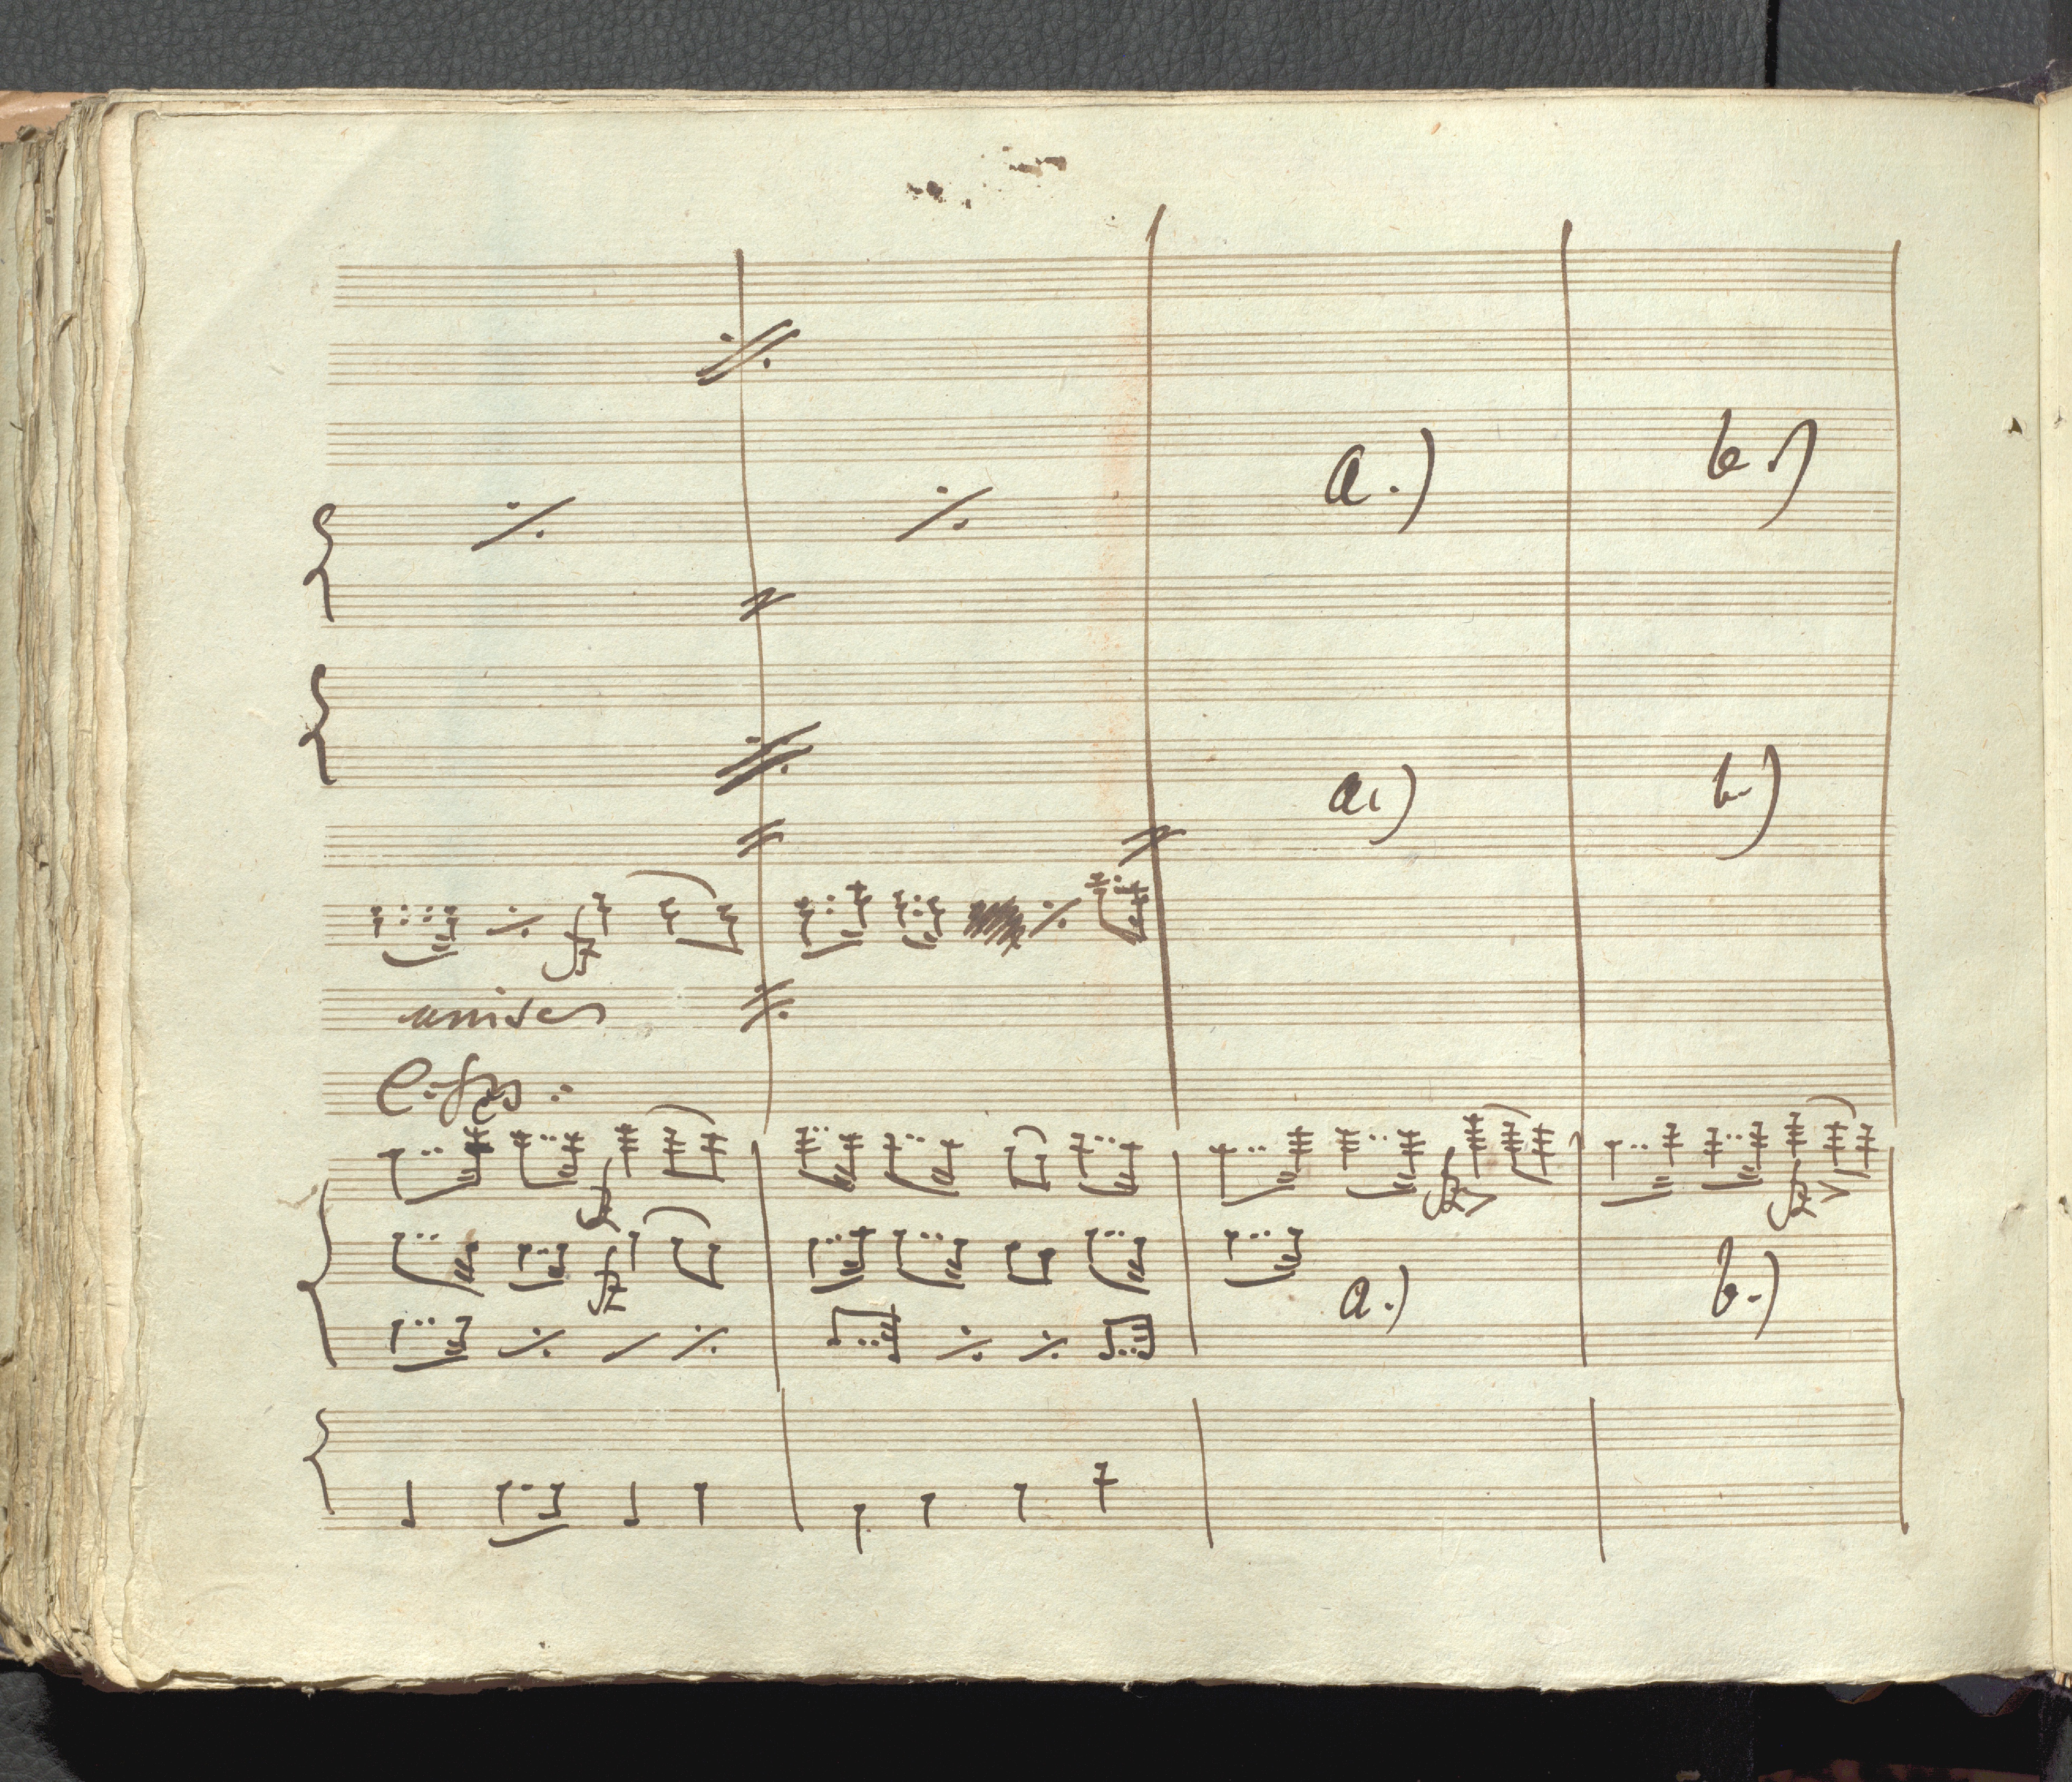 a.) b.)
a.) b.)
fz
unison
fz fz fz
fz
a.) b.)